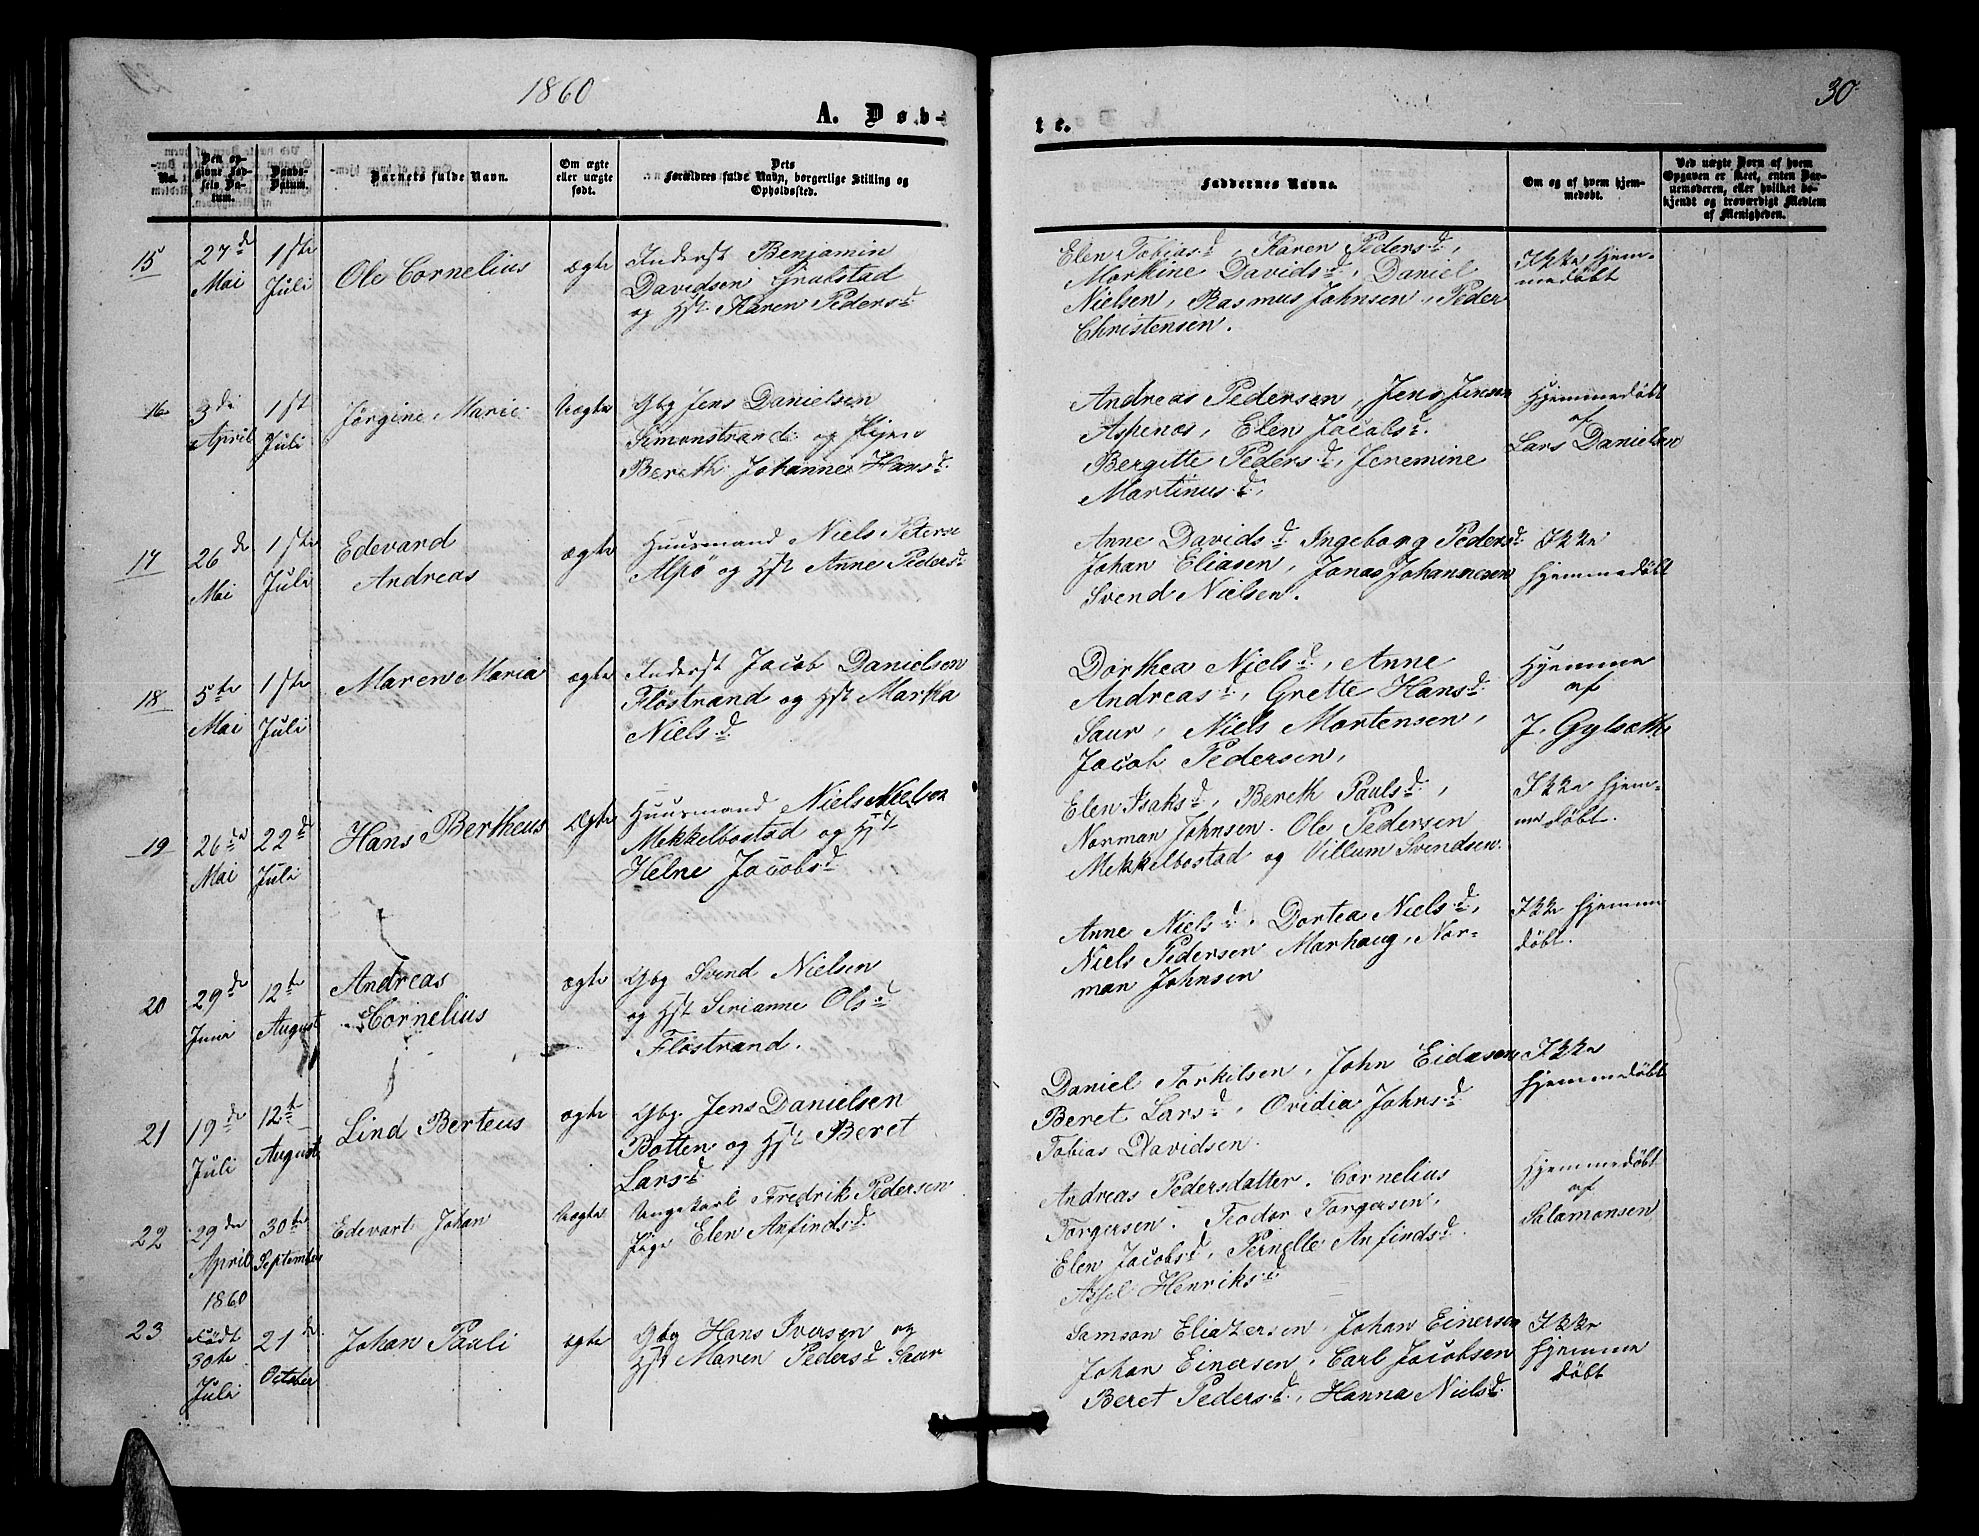 1860
30
A. Døb-
te.
No.
Den opgivne Fødsels Datum.
Daabs-Datum.
Barnets fulde Navn.
Om ægte eller uægte født.
Dets Forældres fulde Navn, borgerlige Stilling og Opholdssted.
Faddernes Navne.
Om og af hvem hjemmedøbt.
Ved uægte Born af hvem Opgaven er skeet, enten Barnemoderen, eller hvilket bekjendt og troværdigt Medlem af Menigheden.
15
27de
Mai
1ste
Juli
Ole Cornelius
ægte
Inderst Benjamin
Davidsen
og Hst. Karen Pedersd.
Elen Tobiasd., Karen Pedersd.,
Davidsd., Daniel
Nielsen, Rasmus Johnsen, Peder
Christensen.
Ikke hjem-
medøbt
16
3di
April
1st
Juli
Jørgine Marie
Uægte
Gbg Jens Danielsen
Simonstrand og Pigen
Bereth Johanne Hansd.
Andreas Pedersen, Jens Jensen
Aspenes, Elen Jacobsd.
Bergitte Pedersd., Jenemine
Martinusd.,
Hjemmedøbt
af
Lars Danielsen
17
26de
Mai
1ste
Juli
Edevard
Andreas
ægte
Huusmand Niels Peters
og Hst Anne Pedersd.
Anne Davidsd. Ingeborg Pedersd.
Johan Eliasen, Jonas Johannesen
Svend Nielsen.
Ikke
hjemmedøbt
18
5te
Mai
1ste
Juli
Maren Maria
ægte
Inderst Jacob Danielsen
Fløstrand og Hst Martha
Nielsd.
Dorthea Nielsd., Anne
Andreasd., Grette Hansd.
Saur, Niels Mortensen,
Jacob Pedersen,
Hjemme
af
J. Gylseth
19
26de
Mai
22d
Juli
Hans Bertheus
Ægte
Huusmand Niels Nielsen
Mekkelbostad og Hst.
Helne Jacobsd.
Elen Isaksd., Bereth Paulsd.,
Norman Johnsen. Ole Pedersen
Mekkelbostad og Villum Svendsen.
Ikke hjem-
medøbt.
20
29de
Juni
12te
August
Andreas
Cornelius
ægte
Gbg Svend Nielsen
og Hst Sirianne Olsd.
Fløstrand.
Anne Nielsd., Dortea Nielsd.,
Niels Pedersen Marhaug, Nor-
man Johnsen
Ikke hjemme
døbt.
21
19de
Juli
12te
August
Lind Berteus
ægte
Gbg. Jens Danielsen
Botten og Hst. Beret
Larsd.
Daniel Torkilsen, John Eidesen
Beret Larsd., Ovidia Johnsd.
Tobias Davidsen.
Ikke
hjemmedøbt
22
29de
April
1860
30te
September
Edevart Johan
Uægte
Ungekarl Fredrik Pedersen
Pige Elen Anfindsd.
Andreas Pedersdatter. Cornelius
Torgersen. Teodor Torgersen,
Elen Jacobsd., Pernelle Anfindsd.
Henriksd.
Hjemmedøbt
af
Salamonsen
23
Født
30te
Juli
21de
October
Johan Pauli
ægte
Gbg Hans Iversen og
Hst Maren Pedersd. Saur
Samson Eliazersen, Johan Einersen
Johan Einersen, Carl Jacobsen
Beret Pedersd., Hanna Nielsd.
Ikke
hjemme
døbt